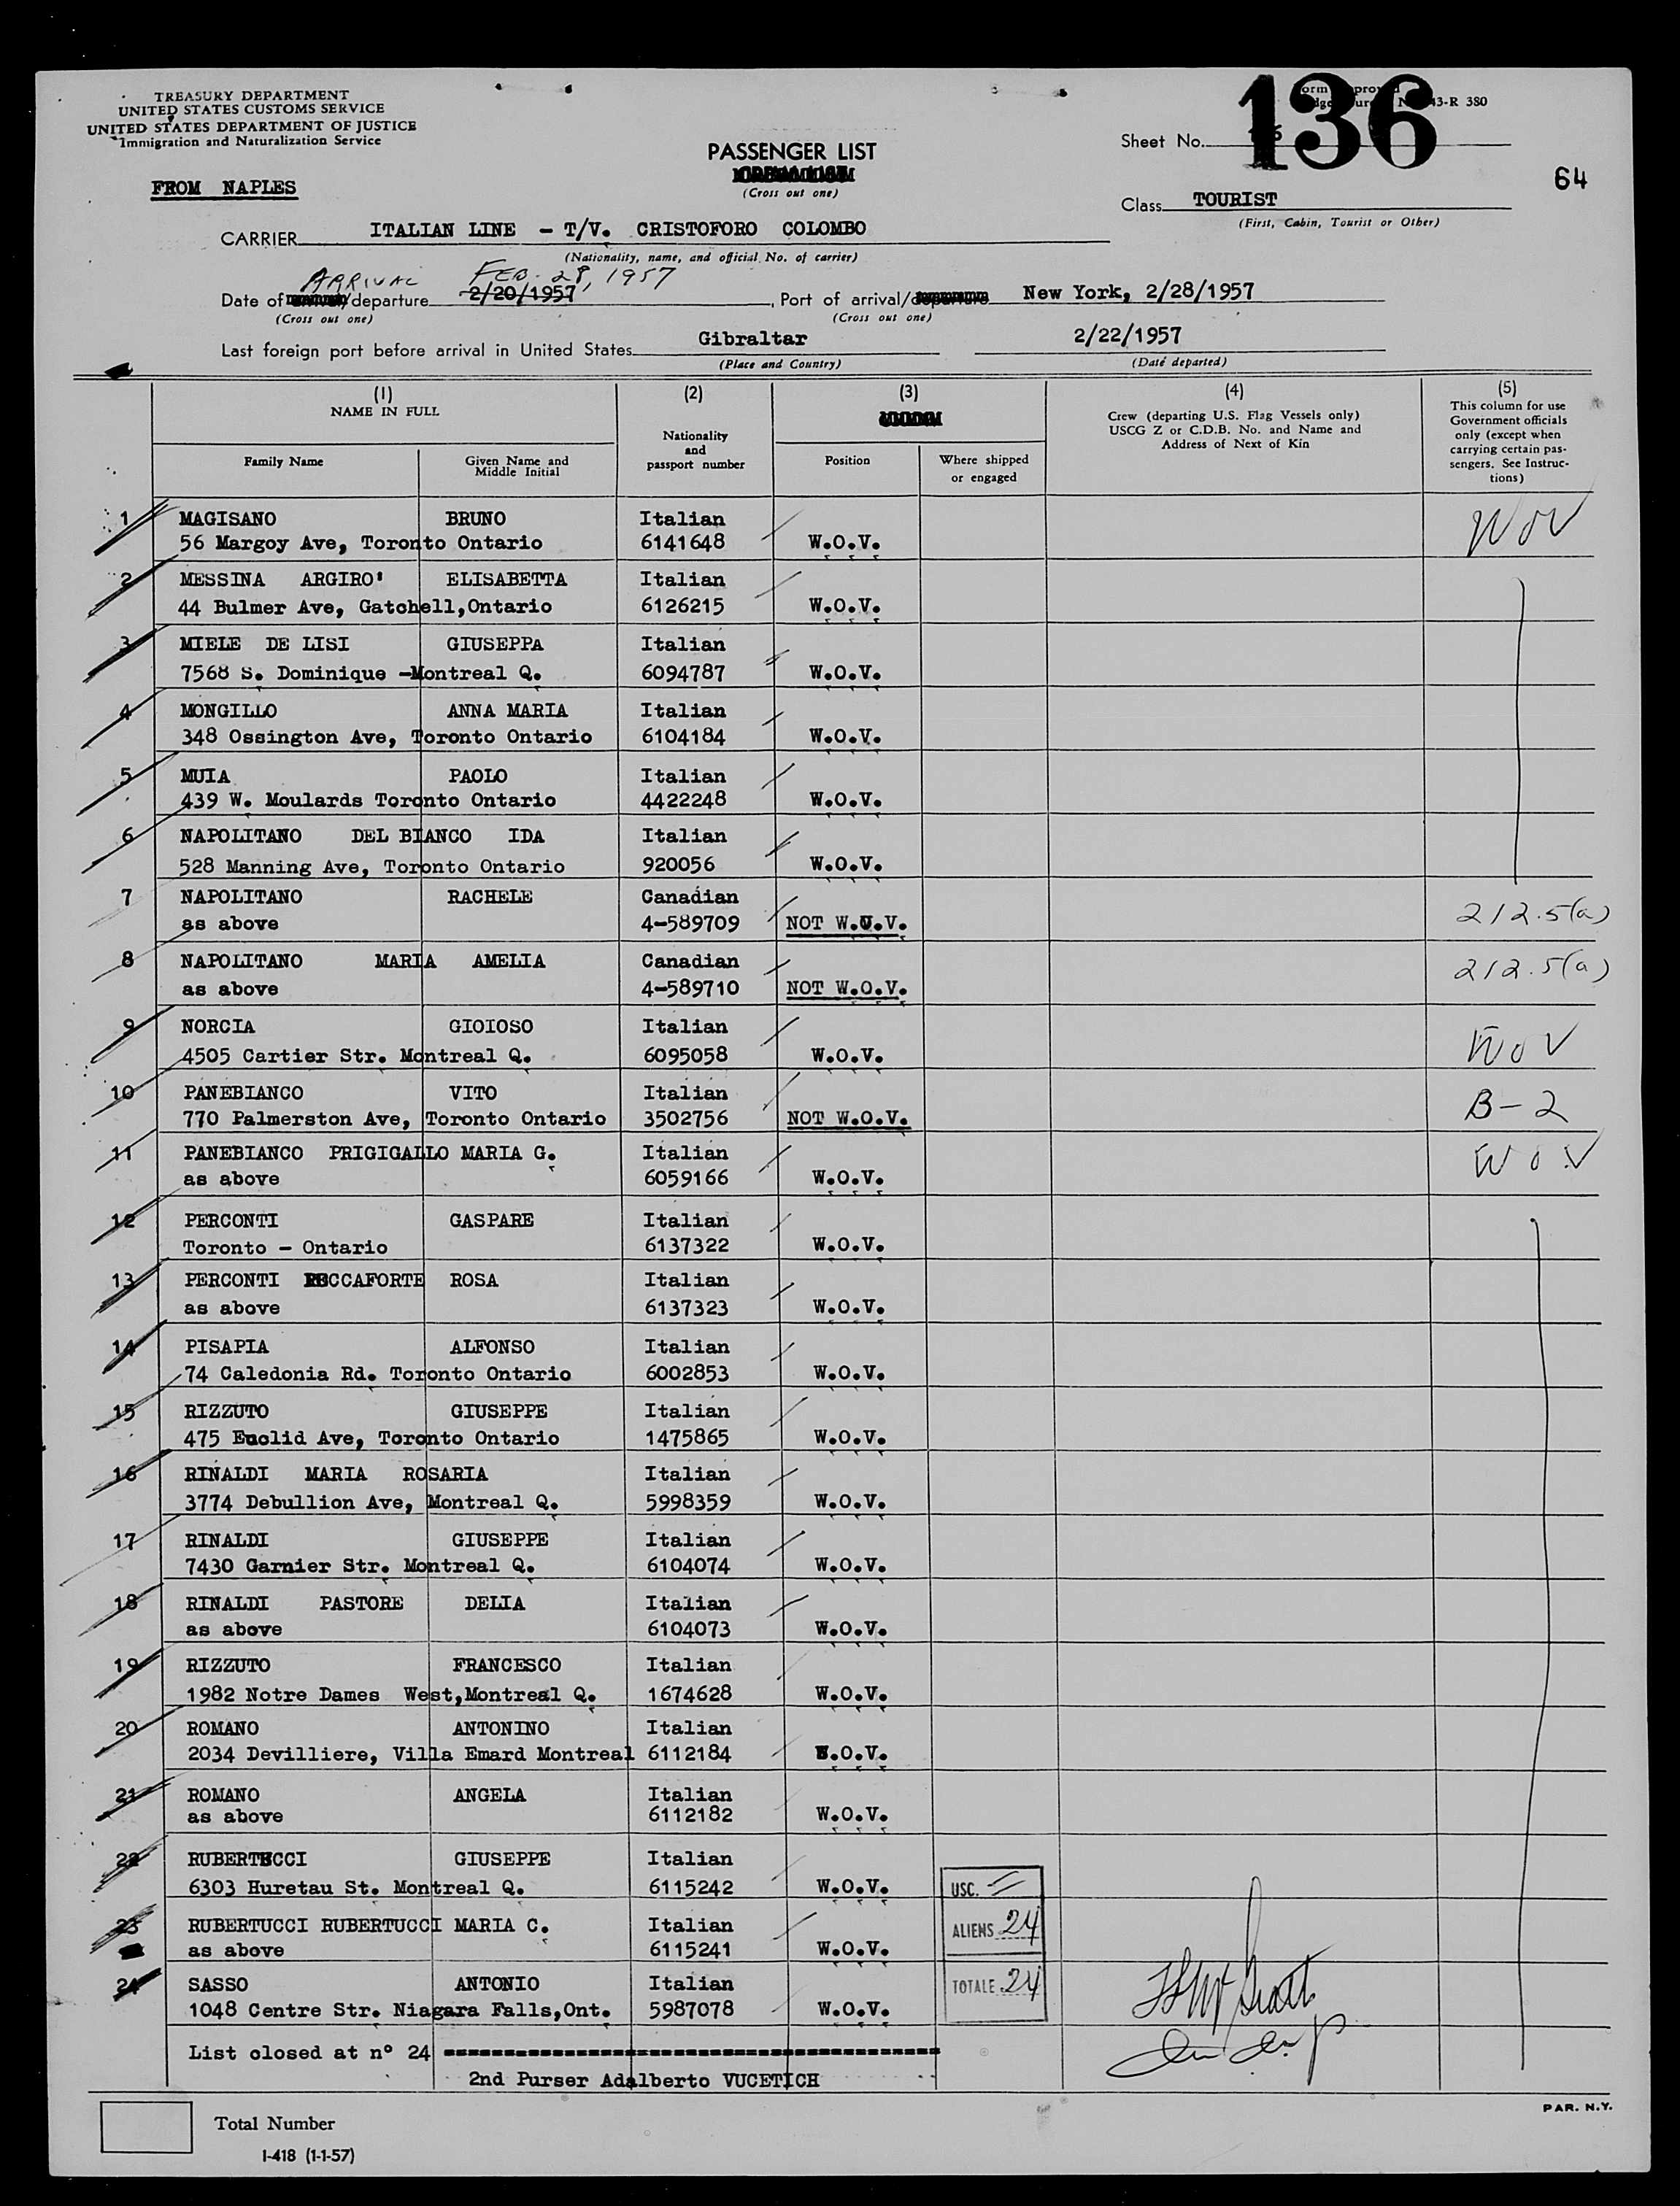 TREASURY DEPARTMENT
UNITED STATES CUSTOMS SERVICE
UNITED STATES DEPARTMENT OF JUSTICE
Immigration and Naturalization Service
FROM NAPLES
PASSENGER LIST
(Cross out one)
Sheet No. 136
43-R 380
64
Class TOURIST
(First, Cabin, Tourist or Other)
CARRIER ITALIAN LINE - T/V. CRISTOFORO COLOMBO
(Nationality, name, and official No. of carrier)
ARRIVAL FEB. 28, 1957
Date of /departure 2/20/1957, Port of arrival/ New York, 2/28/1957
(Cross out one) (Cross out one)
Last foreign port before arrival in United States Gibraltar 2/22/1957
(Place and Country) (Date departed)
(1) NAME IN FULL
Family Name
Given Name and Middle Initial
(2)
Nationality and passport number
(3)
Position
Where shipped or engaged
(4)
Crew (departing U.S. Flag Vessels only)
USCG Z or C.D.B. No. and Name and
Address of Next of Kin
(5)
This column for use
Government officials
only (except when
carrying certain pas-
sengers. See Instruc-
tions)
1 MAGISANO BRUNO Italian WOV
56 Margoy Ave, Toronto Ontario 6141648 W.O.V.
2 MESSINA ARGIRO' ELISABETTA Italian
44 Bulmer Ave, Gatchell,Ontario 6126215 W.O.V.
3 MIELE DE LISI GIUSEPPA Italian
7568 S. Dominique -Montreal Q. 6094787 W.O.V.
4 MONGILLO ANNA MARIA Italian
348 Ossington Ave, Toronto Ontario 6104184 W.O.V.
5 MUIA PAOLO Italian
439 W. Moulards Toronto Ontario 4422248 W.O.V.
6 NAPOLITANO DEL BIANCO IDA Italian
528 Manning Ave, Toronto Ontario 920056 W.O.V.
7 NAPOLITANO RACHELE Canadian 212.5(a)
as above 4-589709 NOT W.O.V.
8 NAPOLITANO MARIA AMELIA Canadian 212.5(a)
as above 4-589710 NOT W.O.V.
9 NORCIA GIOIOSO Italian WOV
4505 Cartier Str. Montreal Q. 6095058 W.O.V.
10 PANEBIANCO VITO Italian B-2
770 Palmerston Ave, Toronto Ontario 3502756 NOT W.O.V.
11 PANEBIANCO PRIGIGALLO MARIA G. Italian WOV
as above 6059166 W.O.V.
12 PERCONTI GASPARE Italian
Toronto - Ontario 6137322 W.O.V.
13 PERCONTI ROCCAFORTE ROSA Italian
as above 6137323 W.O.V.
14 PISAPIA ALFONSO Italian
74 Caledonia Rd. Toronto Ontario 6002853 W.O.V.
15 RIZZUTO GIUSEPPE Italian
475 Euclid Ave, Toronto Ontario 1475865 W.O.V.
16 RINALDI MARIA ROSARIA Italian
3774 Debullion Ave, Montreal Q. 5998359 W.O.V.
17 RINALDI GIUSEPPE Italian
7430 Garnier Str. Montreal Q. 6104074 W.O.V.
18 RINALDI PASTORE DELIA Italian
as above 6104073 W.O.V.
19 RIZZUTO FRANCESCO Italian
1982 Notre Dames West,Montreal Q. 1674628 W.O.V.
20 ROMANO ANTONINO Italian
2034 Devilliere, Villa Emard Montreal 6112184 W.O.V.
21 ROMANO ANGELA Italian
as above 6112182 W.O.V.
22 RUBERTUCCI GIUSEPPE Italian
6303 Huretau St. Montreal Q. 6115242 W.O.V.
USC.
23 RUBERTUCCI RUBERTUCCI MARIA C. Italian
ALIENS 24
as above 6115241 W.O.V.
24 SASSO ANTONIO Italian
TOTALE 24
1048 Centre Str. Niagara Falls,Ont. 5987078 W.O.V.
List closed at n° 24
2nd Purser Adalberto VUCETICH
PAR. N.Y.
Total Number
I-418 (1-1-57)